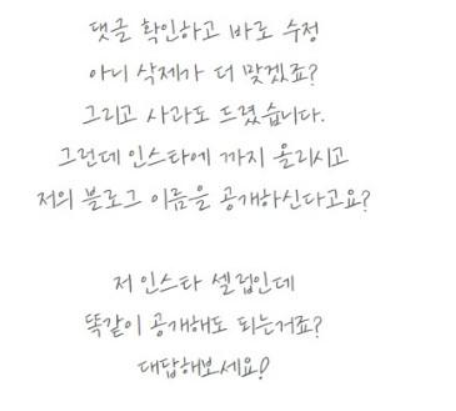 댓글 확인하고 바로 수정
아니 삭제가 더 맞겠죠?
그리고 사과도 드렸습니다.
그런데 인스타에 까지 올리시고
저의 블로그 이름을 공개하신다고요?
저 인스타 셀럽인데
똑같이 공개해도 되는거죠?
대답해보세요!